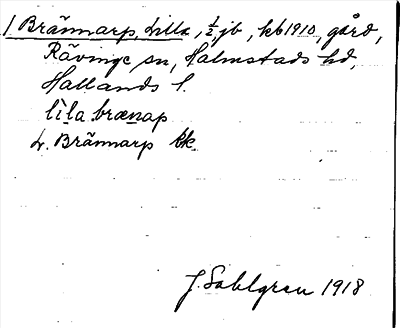 1 Brännarp, Lilla, ½ jb, kb 1910, gård,
Rävinge sn, Halmstads hd,
Hallands l.
lìla brænap
L. Brännarp kk.
J. Sahlgren 1918